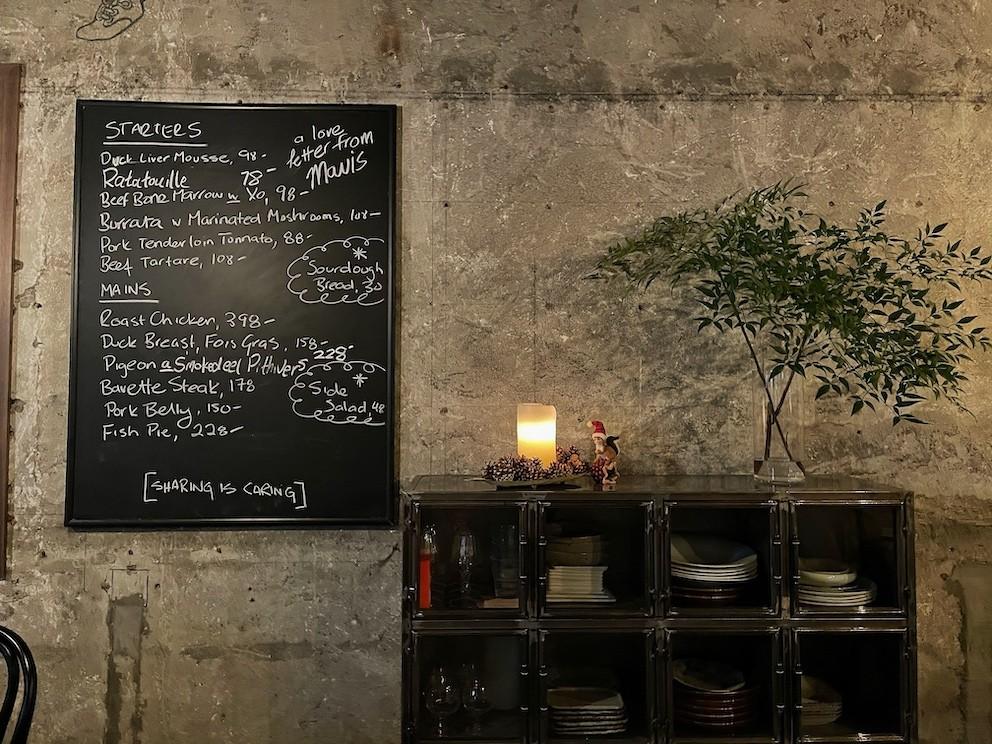 STARTERS
a love
letter from
Mavis
Duck Liver Mousse, 98-
Ratatouille 78-
Beef Bone Marrow w Xo, 98-
Burrata w Marinated Moshrooms, 108-
Pork Tenderloin Tonnato, 88-
Beef Tartare, 108-
* Sourdough
Bread, 30
MAINS
Roast Chicken, 398-
Duck Breast, Fois Gras, 158-
Pigeon a Smoked eel Pithivers 228-
Bavette Steak, 178
Pork Belly, 150-
Fish Pie, 228-
* Side
Salad, 48
[SHARING IS CARING]